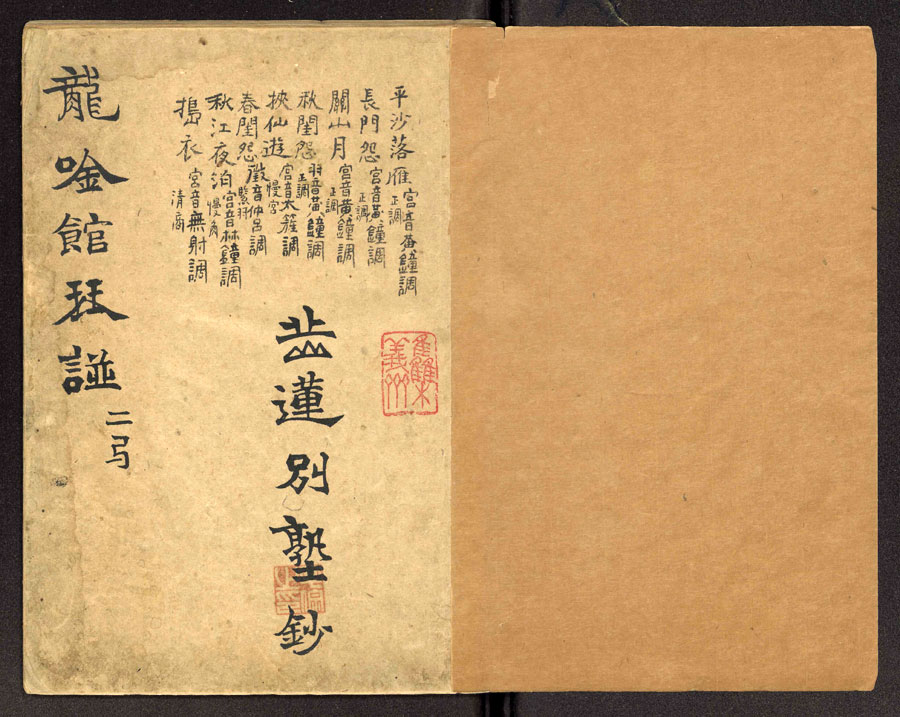 平沙落雁 宮音黃鐘調 正調
長門怨 宮音黃鐘調 正調
關山月 宮音黃鐘調 正調
秋閨怨 羽音黃鐘調 正調
挾仙遊 宮音太簇調 慢宮
春閨怨 徵音仲呂調 緊羽
秋江夜泊 宮音林鐘調 慢角
搗衣 宮音無射調 清商
義州
岳蓮別塾鈔
龍唫館珡諩
二弓